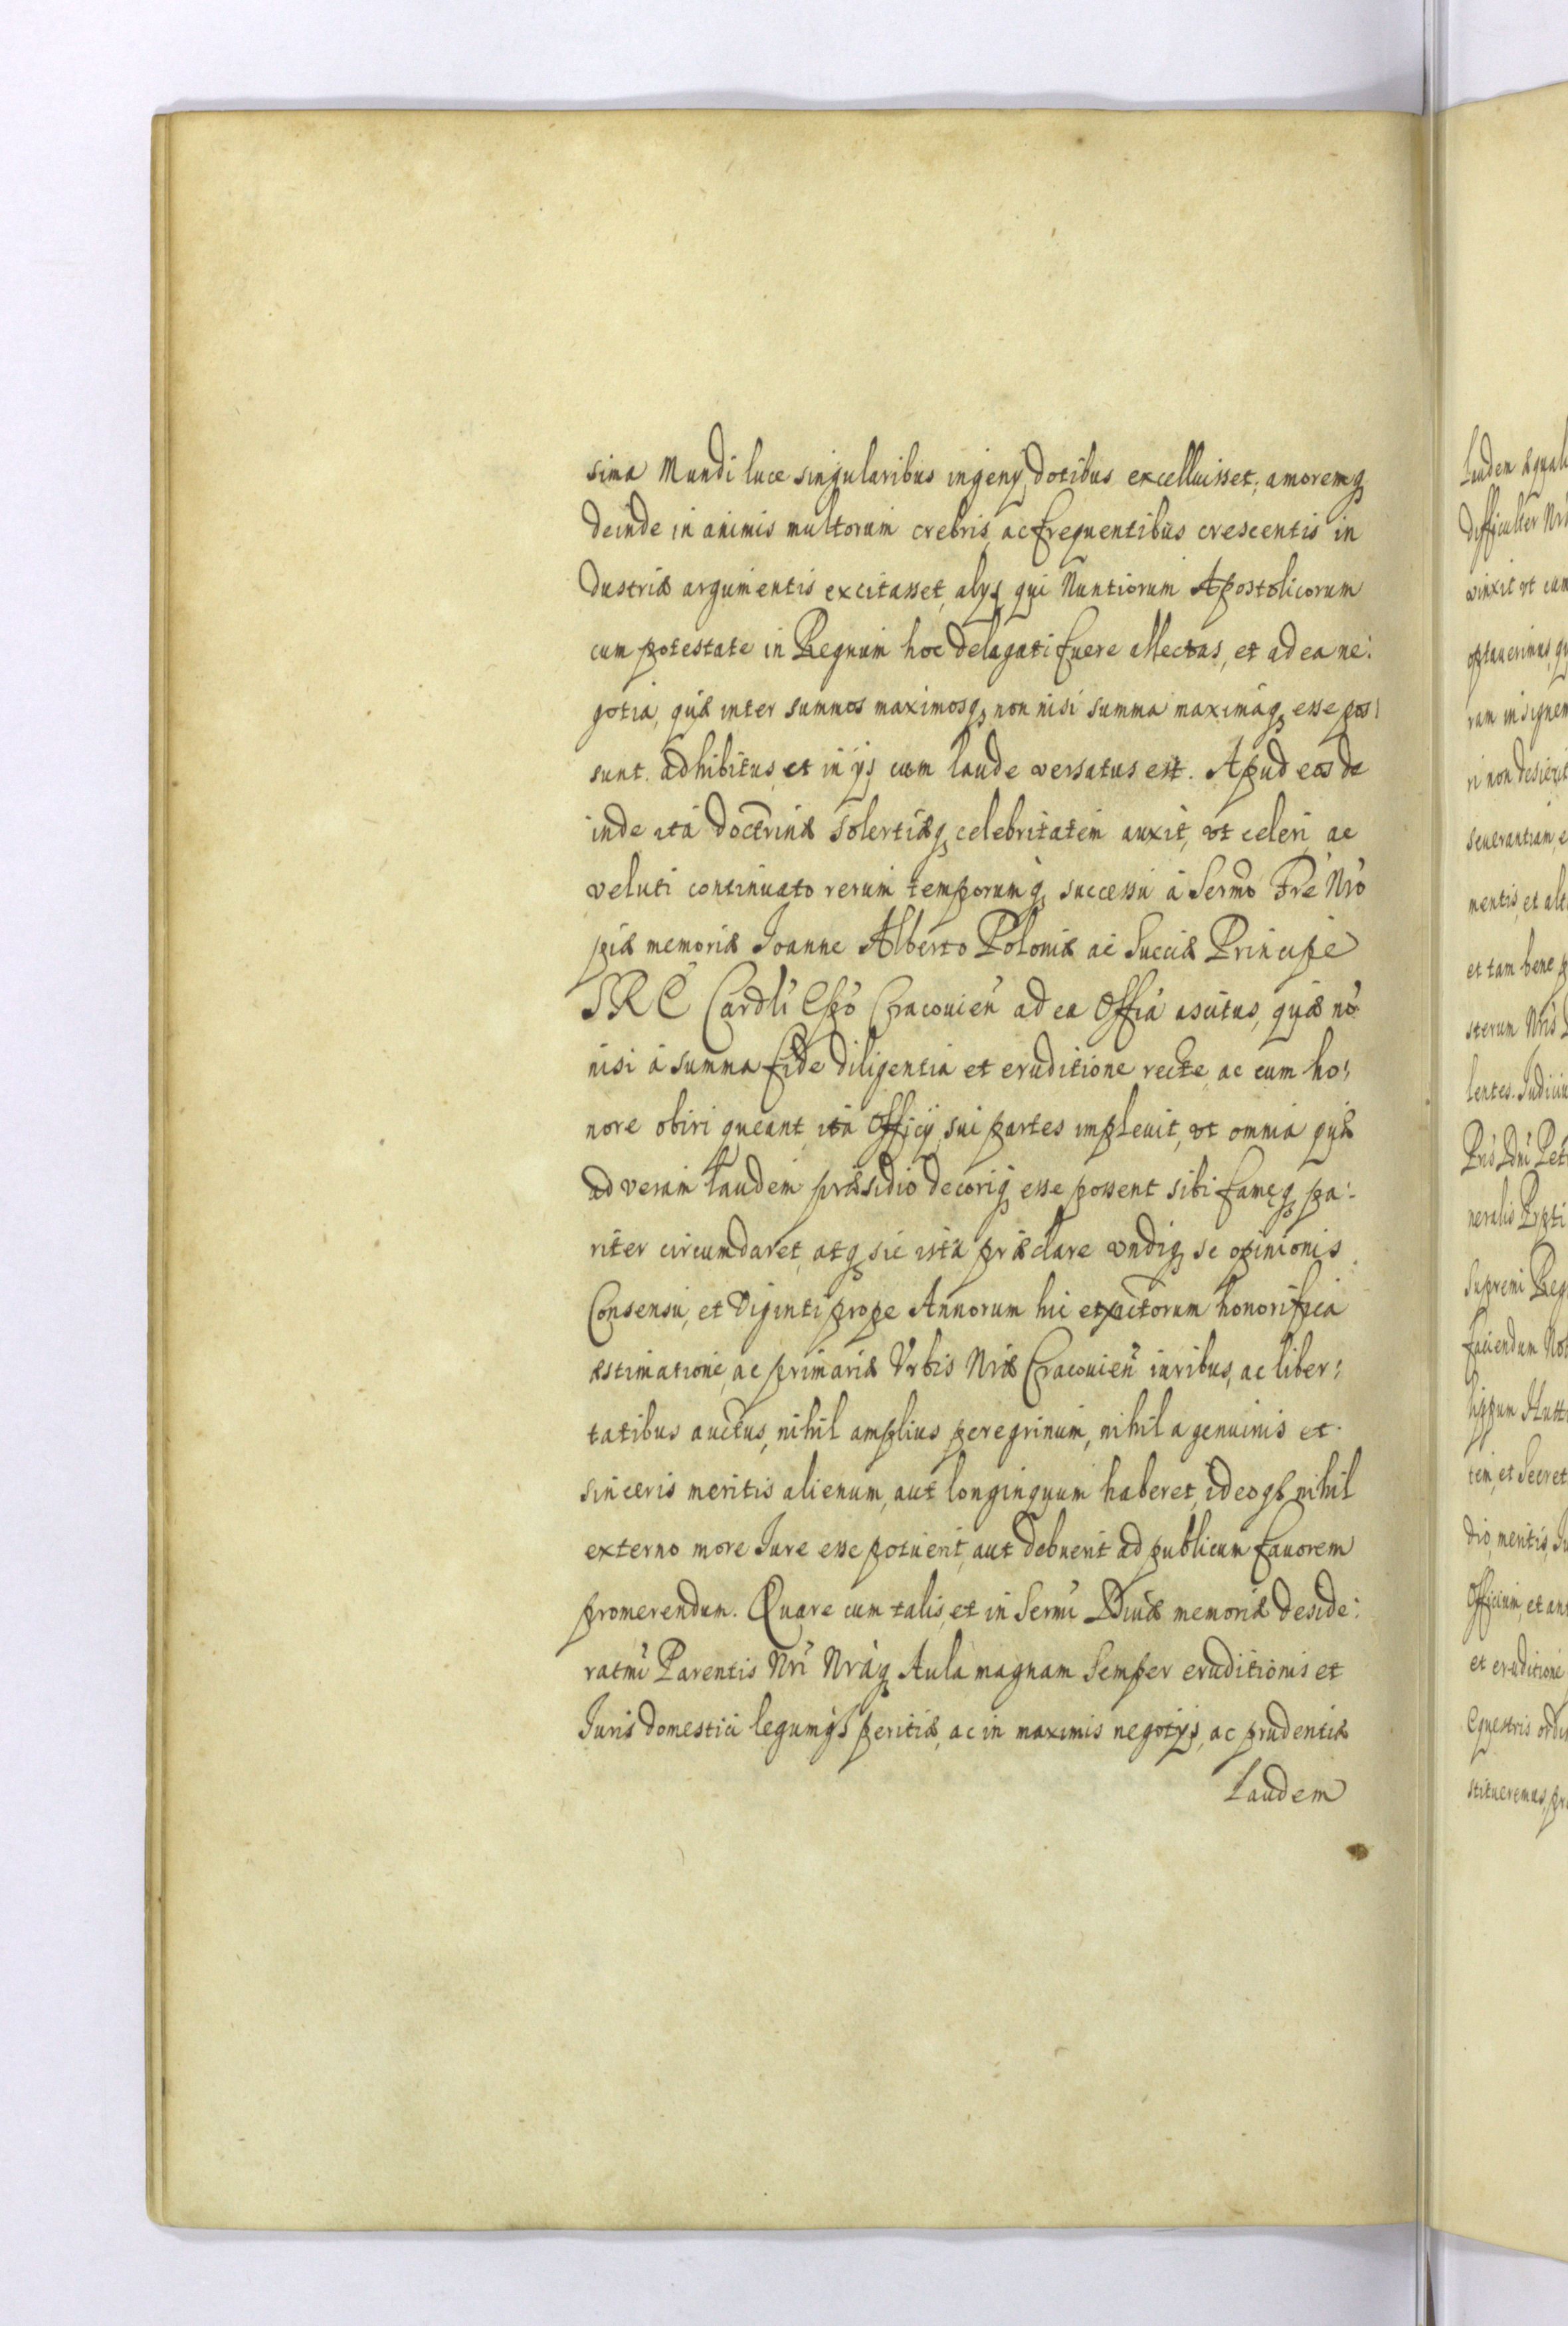 sima Mundi luce singularibus ingenÿ dotibus excelluisset; amoremq́
deinde in animis multorum crebris, ac frequentibus crescentis in
dustriæ argumentis excitasset, alÿs, qui Nuntiorum Apostolicorum
cum potestate in Regnum hoc delagati fuere allectus, et ad ea ne:
gotia, quæ inter summos maximosq́, non nisi summa maximáq́ esse pos:
sunt. adhibitus, et in ÿs cum laude versatus est. Apud eos de
inde ita doctrinæ solertiæq́ celebritatem auxit, vt celeri, ac
veluti continuato rerum temporumq́, successu à Sermo Fre Nro
piæ memoriæ Joanne Alberto Poloniæ ac Sueciæ Principe
SRE Cardli Epo Cracouien ad ea Offia ascitus, quæ nō
nisi à summa fide diligentia et eruditione recte, ac cum ho:
nore obiri queant, ita Officÿ sui partes impleuit, vt omnia quæ
ad veram laudem præsidio decoriq́ esse possent sibi famęq́ pa:
riter circumdaret, atq́ sic ista præclare vndiq́ se opinionis
Consensu, et Viginti prope Annorum hic exactorum honorifica
æstimatione, ac primariæ Vrbis Nræ Cracouien iuribus, ac liber:
tatibus auctus, nihil amplius peregrinum, nihil a genuinis et
sinceris meritis alienum, aut longinquum haberet, ideoq́ nihil
externo more Jure esse potuerit, aut debuerit ad publicum fauorem
promerendum. Quare cum talis, et in Sermi Diuæ memoriæ deside:
ratmi Parentis Nri Nráq́ Aula magnam semper eruditionis et
Juris domestici legumq́ peritiæ, ac in maximis negotÿs, ac prudentiæ
Laudem
Laudem æquali
difficulter Nri
vinxit vt cum
optauerimus,
ram insignem
ri non desierit
seuerantiam, e
mentis, et alt
et tam bene p
sterum Nris
lentes. Judiciu
Pris Dni Pet
neralis Prpti
Supremi Reg
faciendum Not
lippum Hutt
tem, et Secret
dio, meritis, Ju
Officium, et an
et eruditione
Equestris ordi
stitueremus, pr